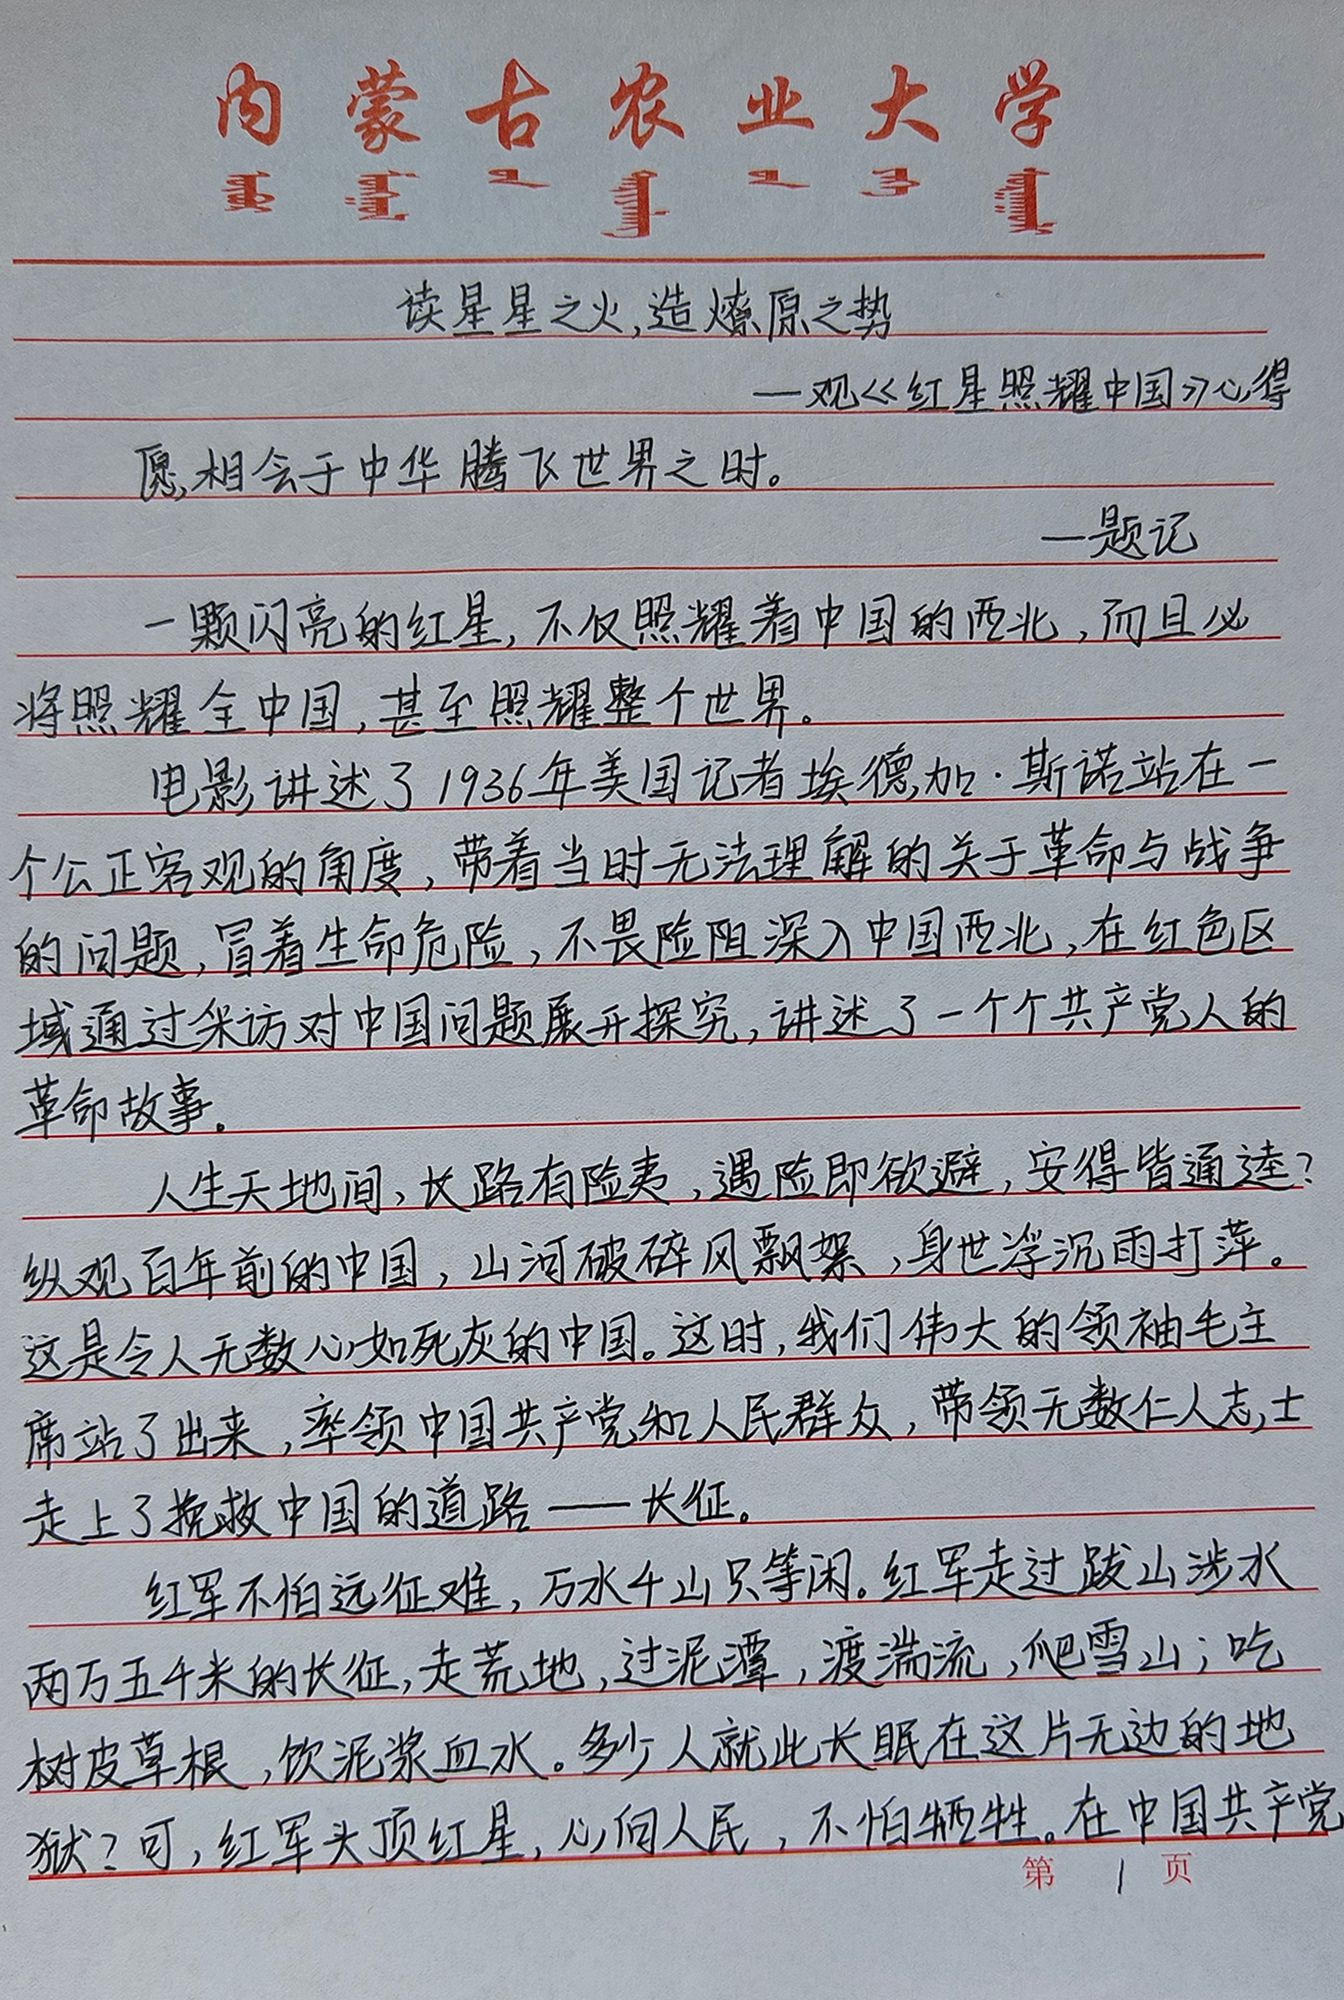 内蒙古农业大学
读星星之火,造燎原之势
—观《红星照耀中国》心得
愿,相会于中华腾飞世界之时。
—题记
一颗闪亮的红星,不仅照耀着中国的西北,而且必
将照耀全中国,甚至照耀整个世界。
电影讲述了1936年美国记者埃德加·斯诺站在一
个公正客观的角度,带着当时无法理解的关于革命与战争
的问题,冒着生命危险,不畏险阻深入中国西北,在红色区
域通过采访对中国问题展开探究,讲述了一个个共产党人的
革命故事。
人生天地间,长路有险夷,遇险即欲避,安得皆通逵?
纵观百年前的中国,山河破碎风飘絮,身世浮沉雨打萍。
这是令人无数心如死灰的中国。这时,我们伟大的领袖毛主
席站了出来,率领中国共产党和人民群众,带领无数仁人志士
走上了挽救中国的道路——长征。
红军不怕远征难,万水千山只等闲。红军走过跋山涉水
两万五千米的长征,走荒地,过泥潭,渡湍流,爬雪山;吃
树皮草根,饮泥浆血水。多少人就此长眠在这片无边的地
狱?可,红军头顶红星,心向人民,不怕牺牲。在中国共产党
第 1 页